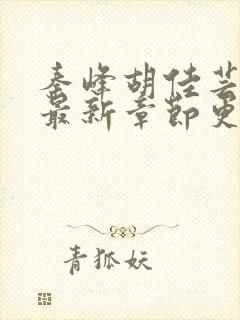 秦峰胡佳芸
最新章节更
青狐妖